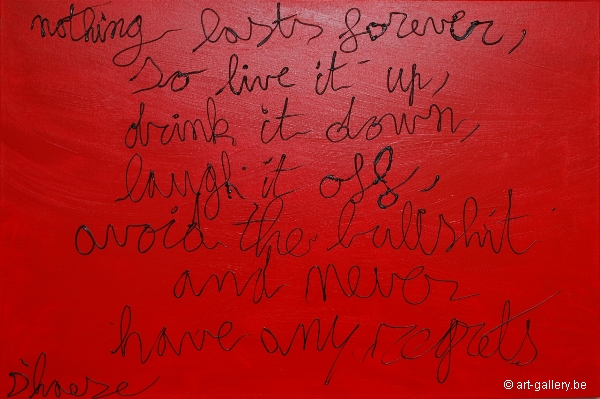 nothing lasts forever,
so live it up,
drink it down,
laugh it off,
avoid the bullshit
and never
have any regrets
D'haese
© art-gallery.be